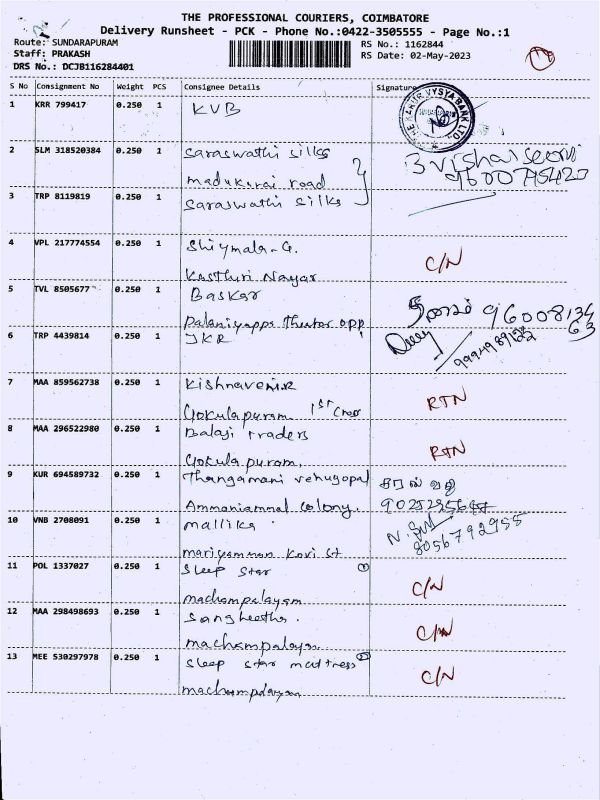 THE PROFESSIONAL COURIERS, COIMBATORE
Delivery Runsheet - PCK - Phone No.:0422-3505555 - Page No.:1
Route: SUNDARAPURAM
Staff: PRAKASH
DRS No.: DCJB116284401
RS No.: 1162844
RS Date: 02-May-2023
S No Consignment No Weight PCS Consignee Details Signature
1 KRR 799417 0.250 1 KVB
2 SLM 318520384 0.250 1 Saraswathi silks
madukarai road
3 TRP 8119819 0.250 1 Saraswathi silks
4 VPL 217774554 0.250 1 Shiymala-G. C/N
Kasthuri Nayar
5 TVL 8505677 0.250 1 Baskar
palaniyappa theator opp
96008134
63
6 TRP 4439814 0.250 1 JKR
7 MAA 859562738 0.250 1 Kishnaveni.R RTN
Gokulapuram 1st Cross
8 MAA 296522980 0.250 1 Balaji traders RTN
Gokulapuram,
9 KUR 694589732 0.250 1 Thangamani venugopal
Ammaniammal colony.
10 VNB 2708091 0.250 1 mallika
mariyamman Kovi st
8056792955
11 POL 1337027 0.250 1 Sleep star 1 C/N
machampalayam
12 MAA 298498693 0.250 1 Sangheetha. C/N
machampalaya
13 MEE 530297978 0.250 1 Sleep star mattress 2 C/N
machampalayam